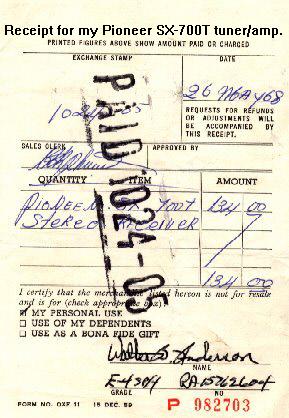 Receipt for my Pioneer SX-700T tuner/amp.
PRINTED FIGURES ABOVE SHOW AMOUNT PAID OR CHARGED
EXCHANGE STAMP
DATE
26 MAY 68
1024-05
REQUESTS FOR REFUNDS
OR ADJUSTMENTS WILL
BE ACCOMPANIED BY
THIS RECEIPT.
SALES CLERK
APPROVED BY
QUANTITY ITEM AMOUNT
PIONEER SX 700T 134 00
STEREO RECEIVER
134 00
PAID 1024-05
I certify that the merchandise listed hereon is not for resale
and is for (check appropriate box):
MY PERSONAL USE
USE OF MY DEPENDENTS
USE AS A BONA FIDE GIFT
Walter S. Anderson
NAME
E-4 209 RA15762604
GRADE NO
FORM NO. OXF 11 15 DEC. 59 P 982703